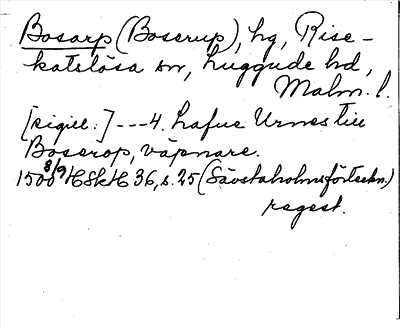 Bosarp (Boserup), hg, Rise-
katslösa sn, Luggude hd,
Malm. l.
[sigill:] --- 4. Lafue Urnes till
Boserop, väpnare.
1500 8/9 HSkH 36, s. 25 (Sävstaholmsförteckn.)
regest.